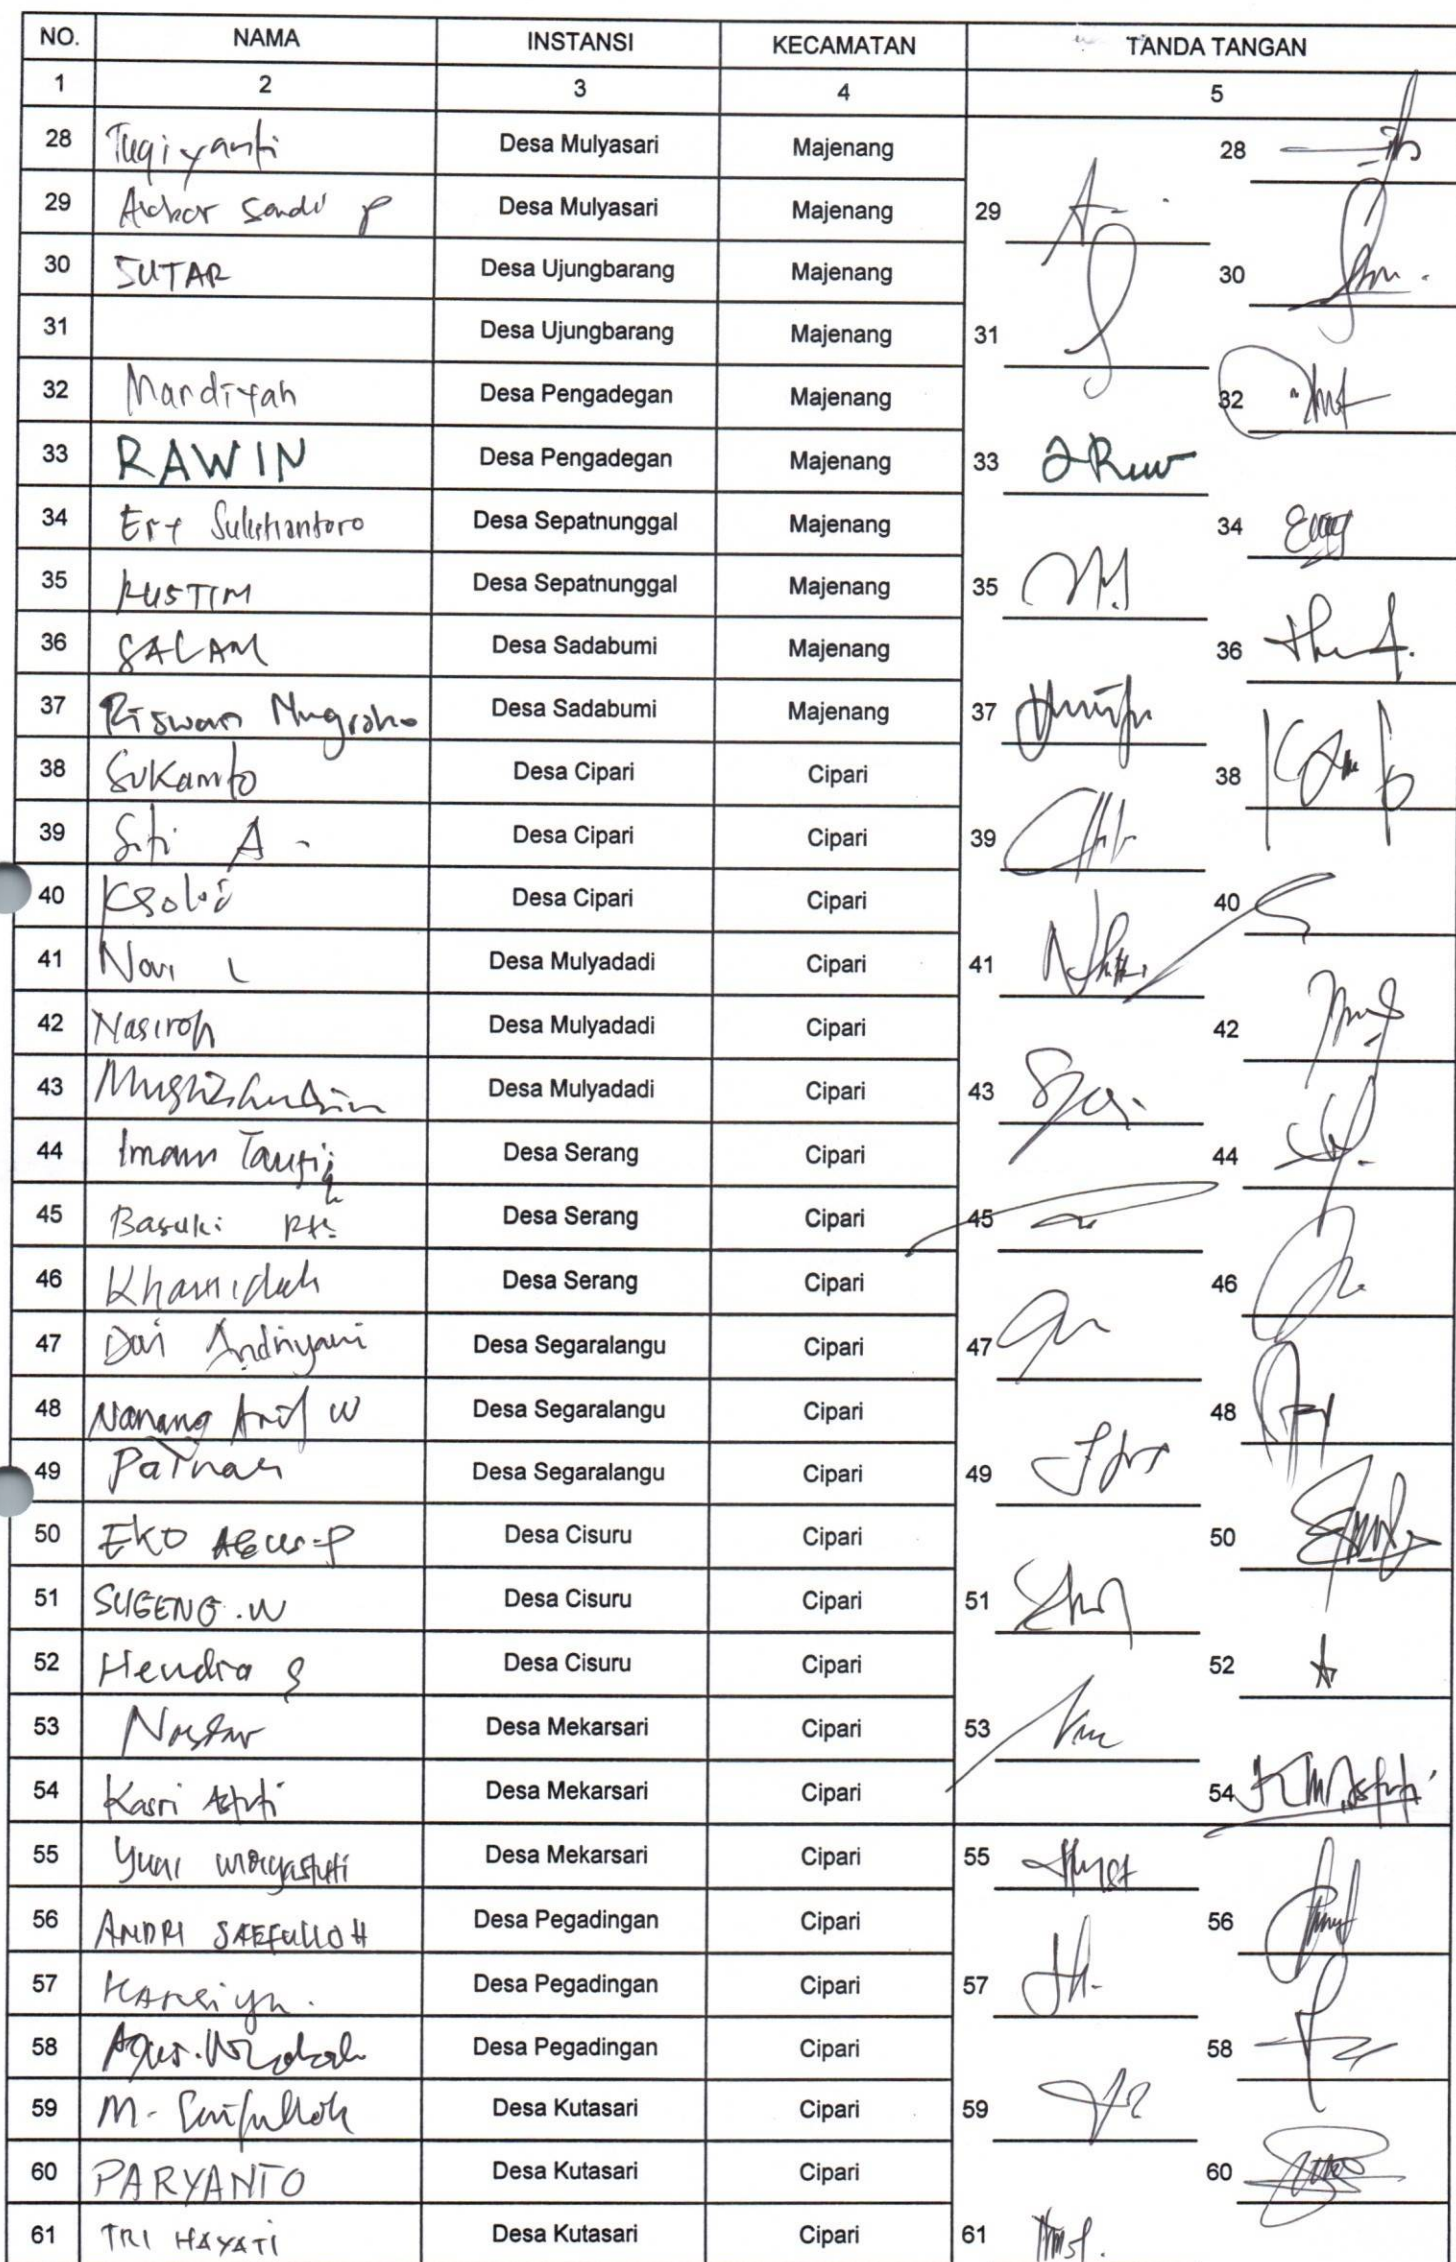 NO. NAMA INSTANSI KECAMATAN TANDA TANGAN
1 2 3 4 5
28 Tugiyanti Desa Mulyasari Majenang 28
29 Sandi P Desa Mulyasari Majenang 29
30 SUTAR Desa Ujungbarang Majenang 30
31 Desa Ujungbarang Majenang 31
32 Mardiyah Desa Pengadegan Majenang 32
33 RAWIN Desa Pengadegan Majenang 33
34 Ery Sulistiantoro Desa Sepatnunggal Majenang 34
35 KUSTIM Desa Sepatnunggal Majenang 35
36 SALAM Desa Sadabumi Majenang 36
37 Riswan Nugroho Desa Sadabumi Majenang 37
38 Sukamto Desa Cipari Cipari 38
39 Siti A - Desa Cipari Cipari 39
40 Desa Cipari Cipari 40
41 Novi L Desa Mulyadadi Cipari 41
42 Nasiroh Desa Mulyadadi Cipari 42
43 Desa Mulyadadi Cipari 43
44 Imam Taufiq Desa Serang Cipari 44
45 Basuki Desa Serang Cipari 45
46 Khamidah Desa Serang Cipari 46
47 Andriyani Desa Segaralangu Cipari 47
48 Nanang Arif W Desa Segaralangu Cipari 48
49 Desa Segaralangu Cipari 49
50 EKO AGUS-P Desa Cisuru Cipari 50
51 SUGENG .W Desa Cisuru Cipari 51
52 Hendra S Desa Cisuru Cipari 52
53 Desa Mekarsari Cipari 53
54 Kasri Astuti Desa Mekarsari Cipari 54
55 Yuni Desa Mekarsari Cipari 55
56 ANDRI SAEFULLOH Desa Pegadingan Cipari 56
57 Desa Pegadingan Cipari 57
58 Agus. Desa Pegadingan Cipari 58
59 M. Saifulloh Desa Kutasari Cipari 59
60 PARYANTO Desa Kutasari Cipari 60
61 TRI HAYATI Desa Kutasari Cipari 61